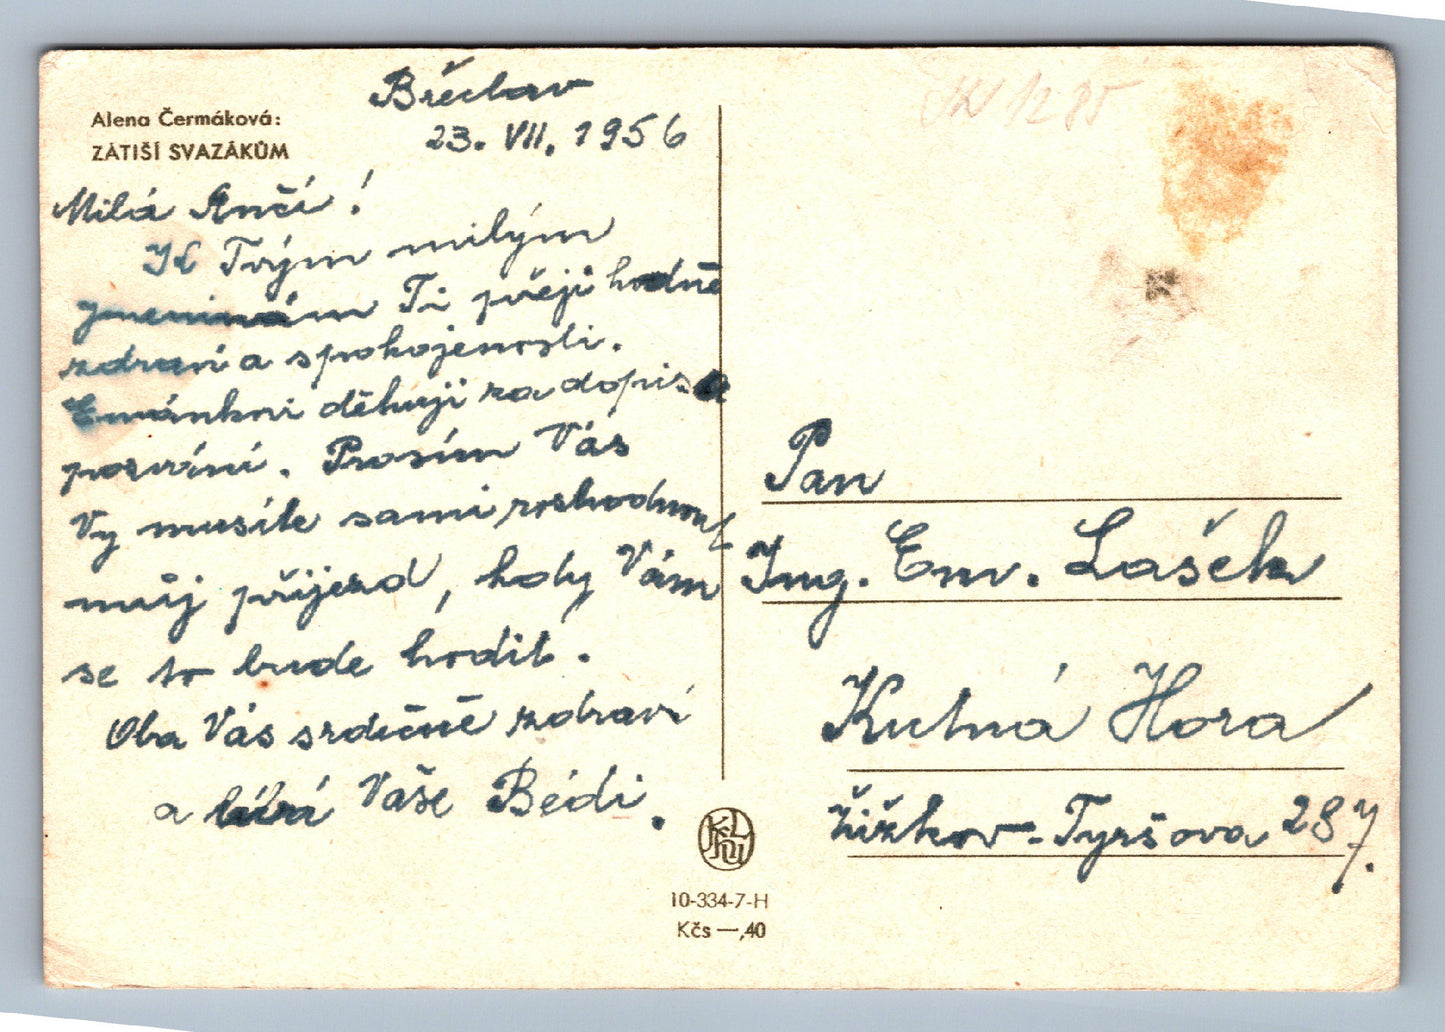 Alena Čermáková:
ZÁTIŠÍ SVAZÁKŮM
Břeclav
23. VII. 1956
Milá Anči!
K Tvým milým
jmeninám Ti přeji hodně
zdraví a spokojenosti.
Emánkovi děkuji za dopis a
pozvání. Prosím Vás
Vy musíte sami rozhodnout
můj příjezd, kdy Vám
se to bude hodit.
Oba Vás srdečně zdraví
a líbá Vaše Bédi.
Pan
Ing. Em. Lašek
Kutná Hora
Žižkov-Tyršova 287.
10-334-7-H
Kčs —,40